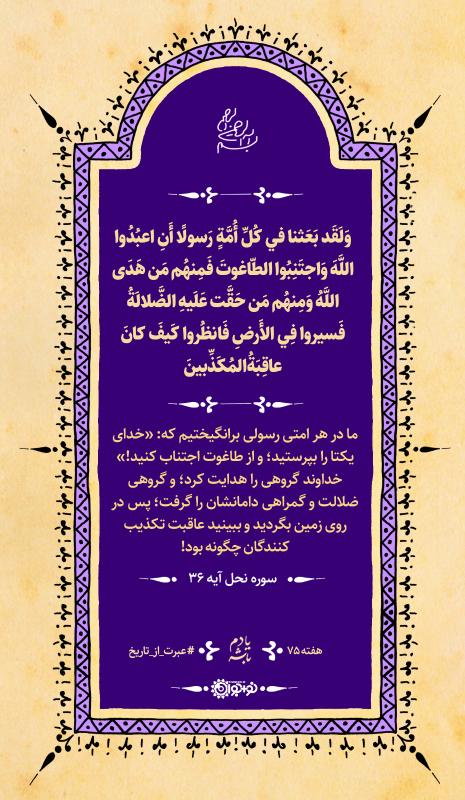 وَلَقَد بَعَثنا في كُلِّ أُمَّةٍ رَسولًا أَنِ اعبُدُوا
اللَّهَ وَاجتَنِبُوا الطّاغوتَ فَمِنهُم مَن هَدَى
اللَّهُ وَمِنهُم مَن حَقَّت عَلَيهِ الضَّلالَةُ
فَسيروا فِي الأَرضِ فَانظُروا كَيفَ كانَ
عاقِبَةُالمُكَذِّبينَ
ما در هر امتی رسولی برانگیختیم که: «خدای
یکتا را بپرستید؛ و از طاغوت اجتناب کنید!»
خداوند گروهی را هدایت کرد؛ و گروهی
ضلالت و گمراهی دامانشان را گرفت؛ پس در
روی زمین بگردید و ببینید عاقبت تکذیب
کنندگان چگونه بود!
سوره نحل آیه ۳۶
هفته ۷۵
#عبرت_از_تاریخ